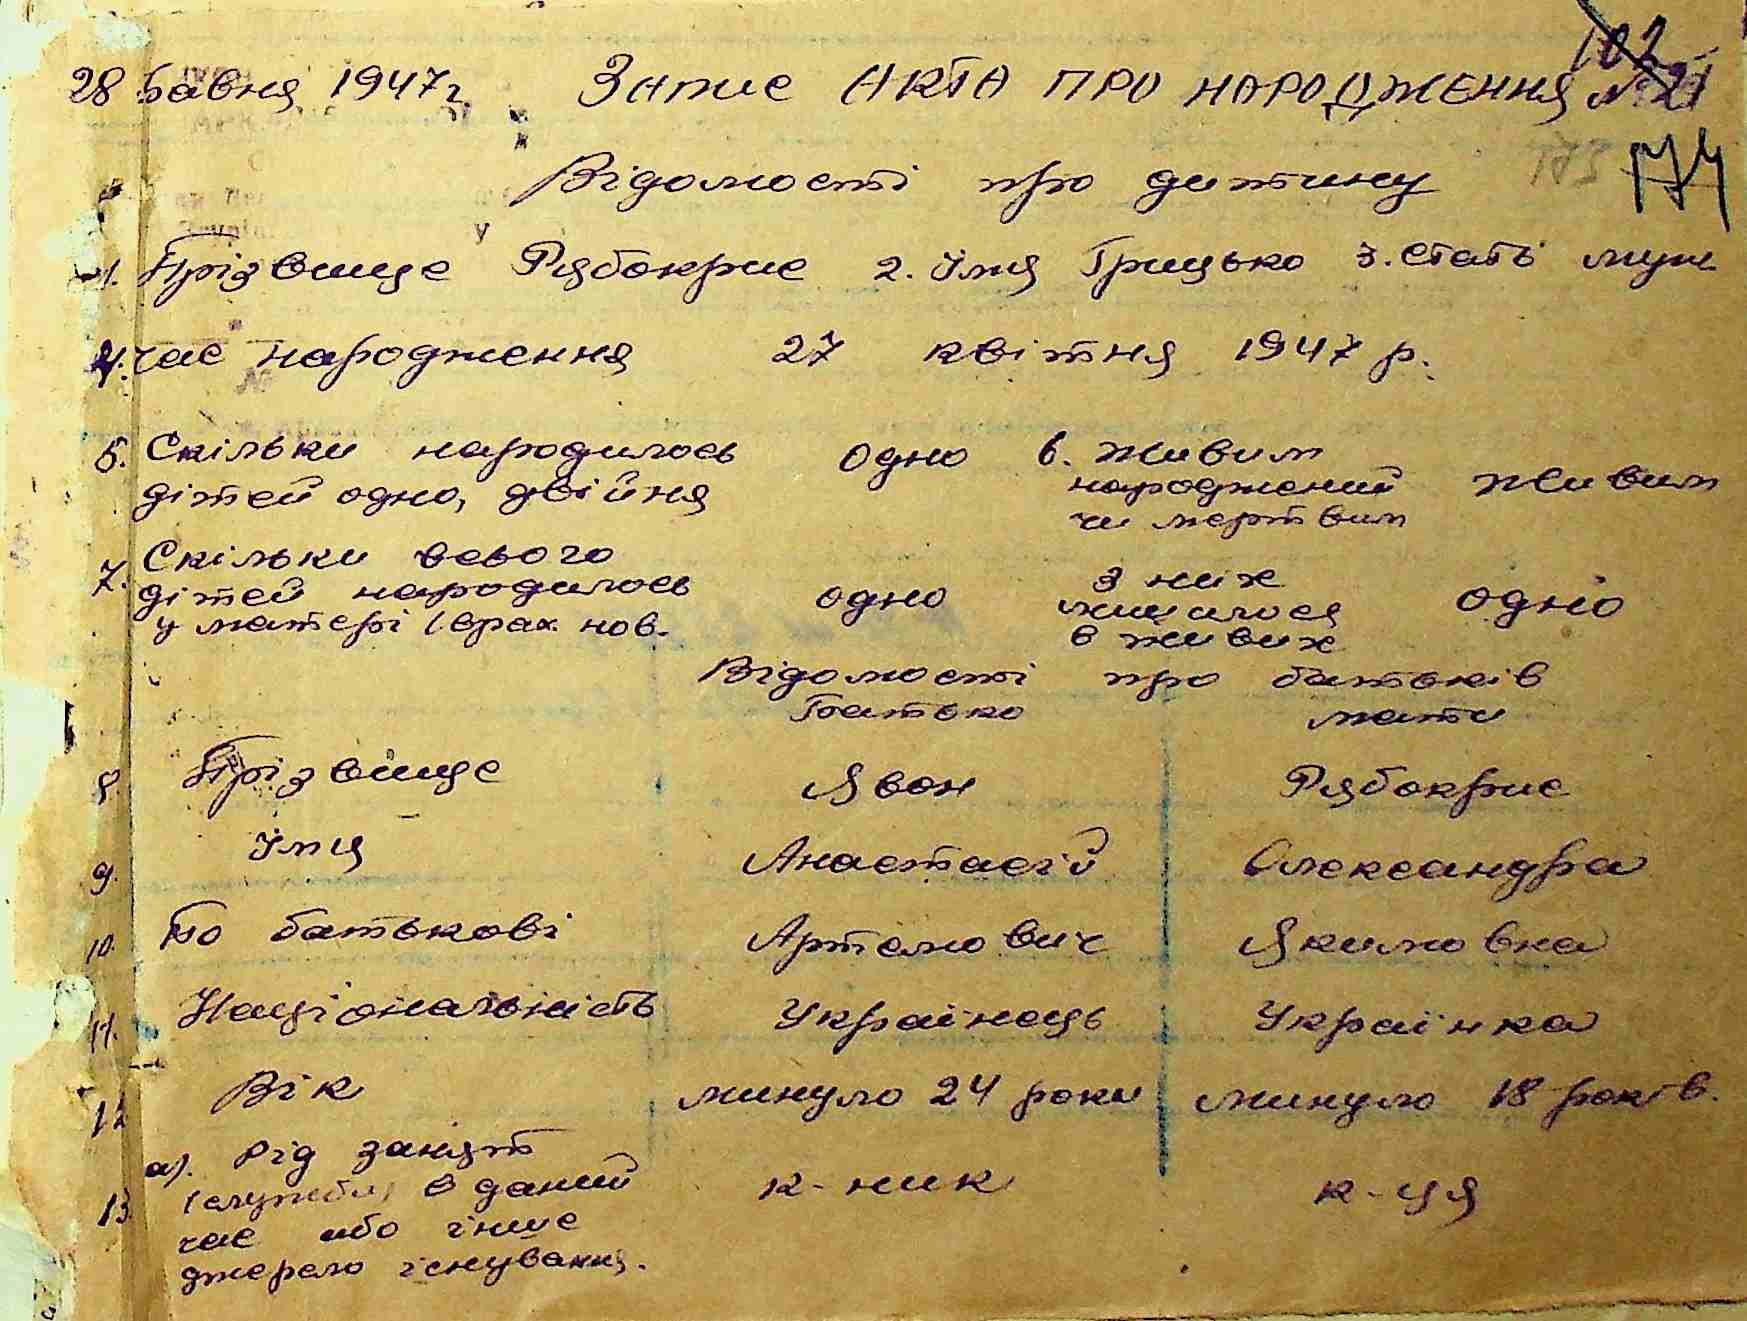 28 Бавня 1947 г. Запис акта про народження № 21
102
174
Відомості про дитину
1. Прізвище Рябокрис 2. Імя Грицько 3. стать муж
4. час народження 27 квітня 1947 р.
5. Скільки народилось одно 6. живим
дітей одно, двійня народжений живим
чи мертвим
7. Скільки всього
дітей народилось одно з них лишилося одно
у матері (врах. нов. в живих
Відомості про батьків
Батько мати
8. Прізвище Явон Рябокрис
9. Імя Анастасій Олександра
10. По батькові Артемович Якимовна
11. Національність Українець Українка
12 Вік минуло 24 роки минуло 18 років.
13. а). Рід занят
(служби) в даний к-ник к-ця
час або інше
джерело існування.